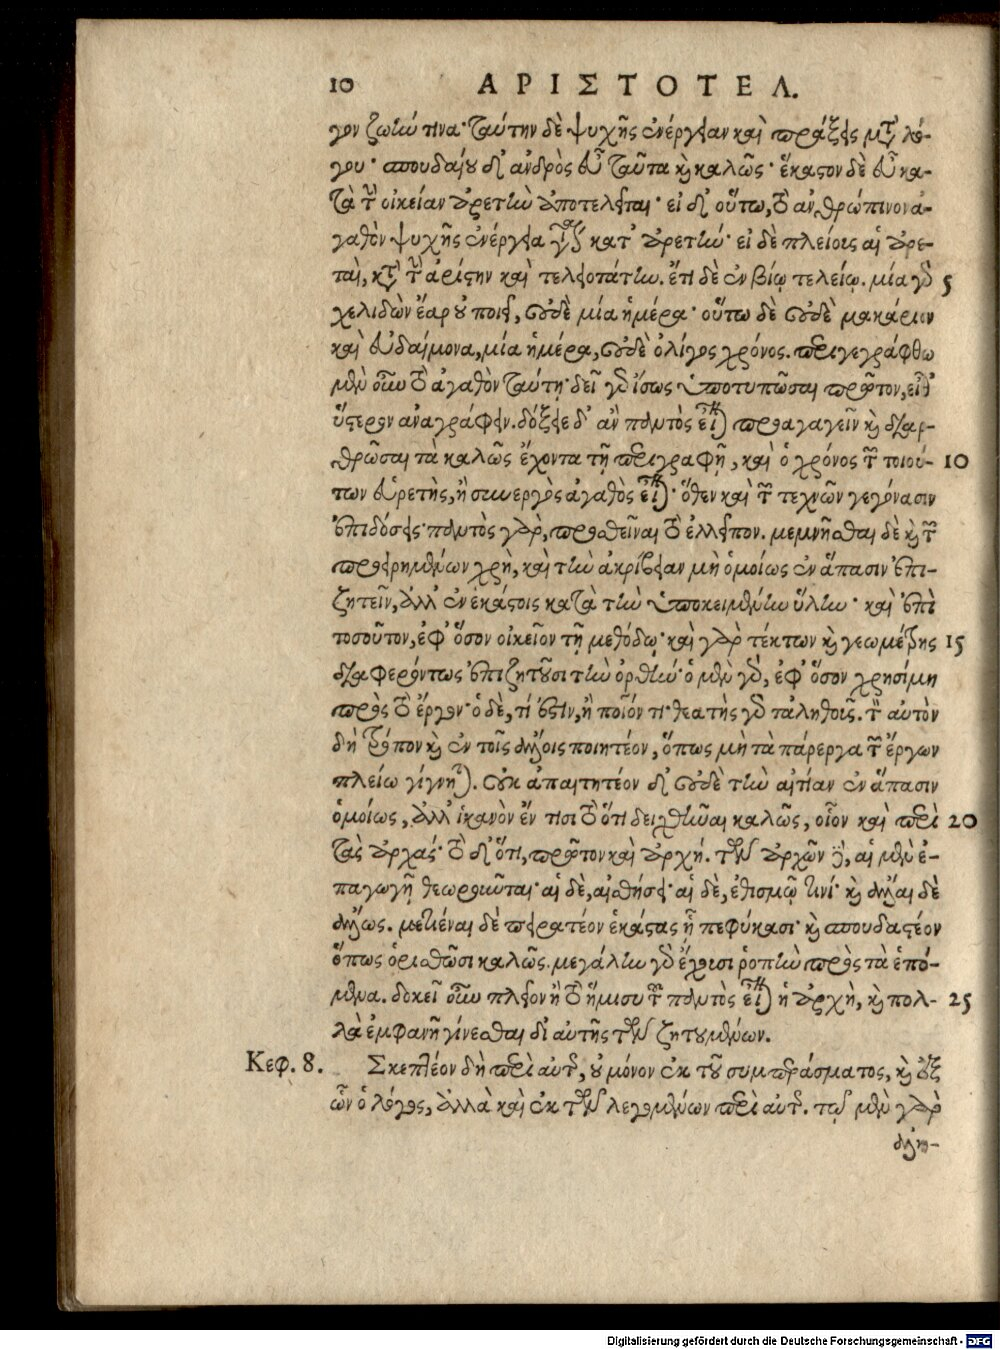 10 ΑΡΙΣΤΟΤΕΛ.
γον ζωὴν τινα· ταύτην δὲ ψυχῆς ἐνέργειαν καὶ πράξεις μετὰ λό-
γου· σπουδαίου δ' ἀνδρὸς εὖ ταῦτα καὶ καλῶς· ἕκαστον δὲ εὖ κα-
τὰ τὴν οἰκείαν ἀρετὴν ἀποτελεῖται· εἰ δ' οὕτω, τὸ ἀνθρώπινον ἀ-
γαθὸν ψυχῆς ἐνέργεια γίνεται κατ' ἀρετὴν· εἰ δὲ πλείοις αἱ ἀρε-
ταὶ, κατὰ τὴν ἀρίστην καὶ τελειοτάτην. ἔτι δὲ ἐν βίῳ τελείῳ. μία γὰρ 5
χελιδὼν ἔαρ οὐ ποιεῖ, οὐδὲ μία ἡμέρα· οὕτω δὲ οὐδὲ μακάριον
καὶ εὐδαίμονα, μία ἡμέρα, οὐδὲ ὀλίγος χρόνος. περιγεγράφθω
μὲν οὖν τὸ ἀγαθὸν ταύτῃ· δεῖ γὰρ ἴσως ὑποτυπῶσαι πρῶτον, εἶθ'
ὕστερον ἀναγράφειν. δόξειε δ' ἂν παντὸς εἶναι προαγαγεῖν καὶ διαρ-
θρῶσαι τὰ καλῶς ἔχοντα τῇ περιγραφῇ, καὶ ὁ χρόνος τῶν τοιού- 10
των εὑρετὴς, ἢ συνεργὸς ἀγαθὸς εἶναι· ὅθεν καὶ τῶν τεχνῶν γεγόνασιν
ἐπιδόσεις· παντὸς γὰρ, προσθεῖναι τὸ ἐλλεῖπον. μεμνῆσθαι δὲ καὶ τῶν
προειρημένων χρὴ, καὶ τὴν ἀκρίβειαν μὴ ὁμοίως ἐν ἅπασιν ἐπι-
ζητεῖν, ἀλλ' ἐν ἑκάστοις κατὰ τὴν ὑποκειμένην ὕλην· καὶ ἐπὶ
τοσοῦτον, ἐφ' ὅσον οἰκεῖον τῇ μεθόδῳ· καὶ γὰρ τέκτων καὶ γεωμέτρης 15
διαφερόντως ἐπιζητοῦσι τὴν ὀρθὴν· ὁ μὲν γὰρ, ἐφ' ὅσον χρησίμη
πρὸς τὸ ἔργον· ὁ δὲ, τί ἐστὶν, ἢ ποῖόν τι· θεατὴς γὰρ τἀληθοῦς. τὸν αὐτὸν
δὴ τρόπον καὶ ἐν τοῖς ἄλλοις ποιητέον, ὅπως μὴ τὰ πάρεργα τῶν ἔργων
πλείω γίγνηται. οὐκ ἀπαιτητέον δ' οὐδὲ τὴν αἰτίαν ἐν ἅπασιν
ὁμοίως, ἀλλ' ἱκανὸν ἔν τισι τὸ ὅτι δειχθῆναι καλῶς, οἷον καὶ περὶ 20
τὰς ἀρχάς· τὸ δ' ὅτι, πρῶτον καὶ ἀρχή. τῶν ἀρχῶν δὲ, αἱ μὲν ἐ-
παγωγῇ θεωροῦνται· αἱ δὲ, αἰσθήσει· αἱ δὲ, ἐθισμῷ τινί· καὶ ἄλλαι δὲ
ἄλλως. μετιέναι δὲ πειρατέον ἑκάστας ᾗ πεφύκασι· καὶ σπουδαστέον
ὅπως ὁρισθῶσι καλῶς. μεγάλην γὰρ ἔχουσι ῥοπὴν πρὸς τὰ ἑπό-
μενα. δοκεῖ οὖν πλεῖον ἢ τὸ ἥμισυ τοῦ παντὸς εἶναι ἡ ἀρχὴ, καὶ πολ- 25
λὰ ἐμφανῆ γίνεσθαι δι' αὐτῆς τῶν ζητουμένων.
Κεφ. 8. Σκεπτέον δὴ περὶ αὐτῆς, οὐ μόνον ἐκ τοῦ συμπεράσματος, καὶ ἐξ
ὧν ὁ λόγος, ἀλλὰ καὶ ἐκ τῶν λεγομένων περὶ αὐτῆς. τῷ μὲν γὰρ
ἀλη-
Digitalisierung gefördert durch die Deutsche Forschungsgemeinschaft - DFG